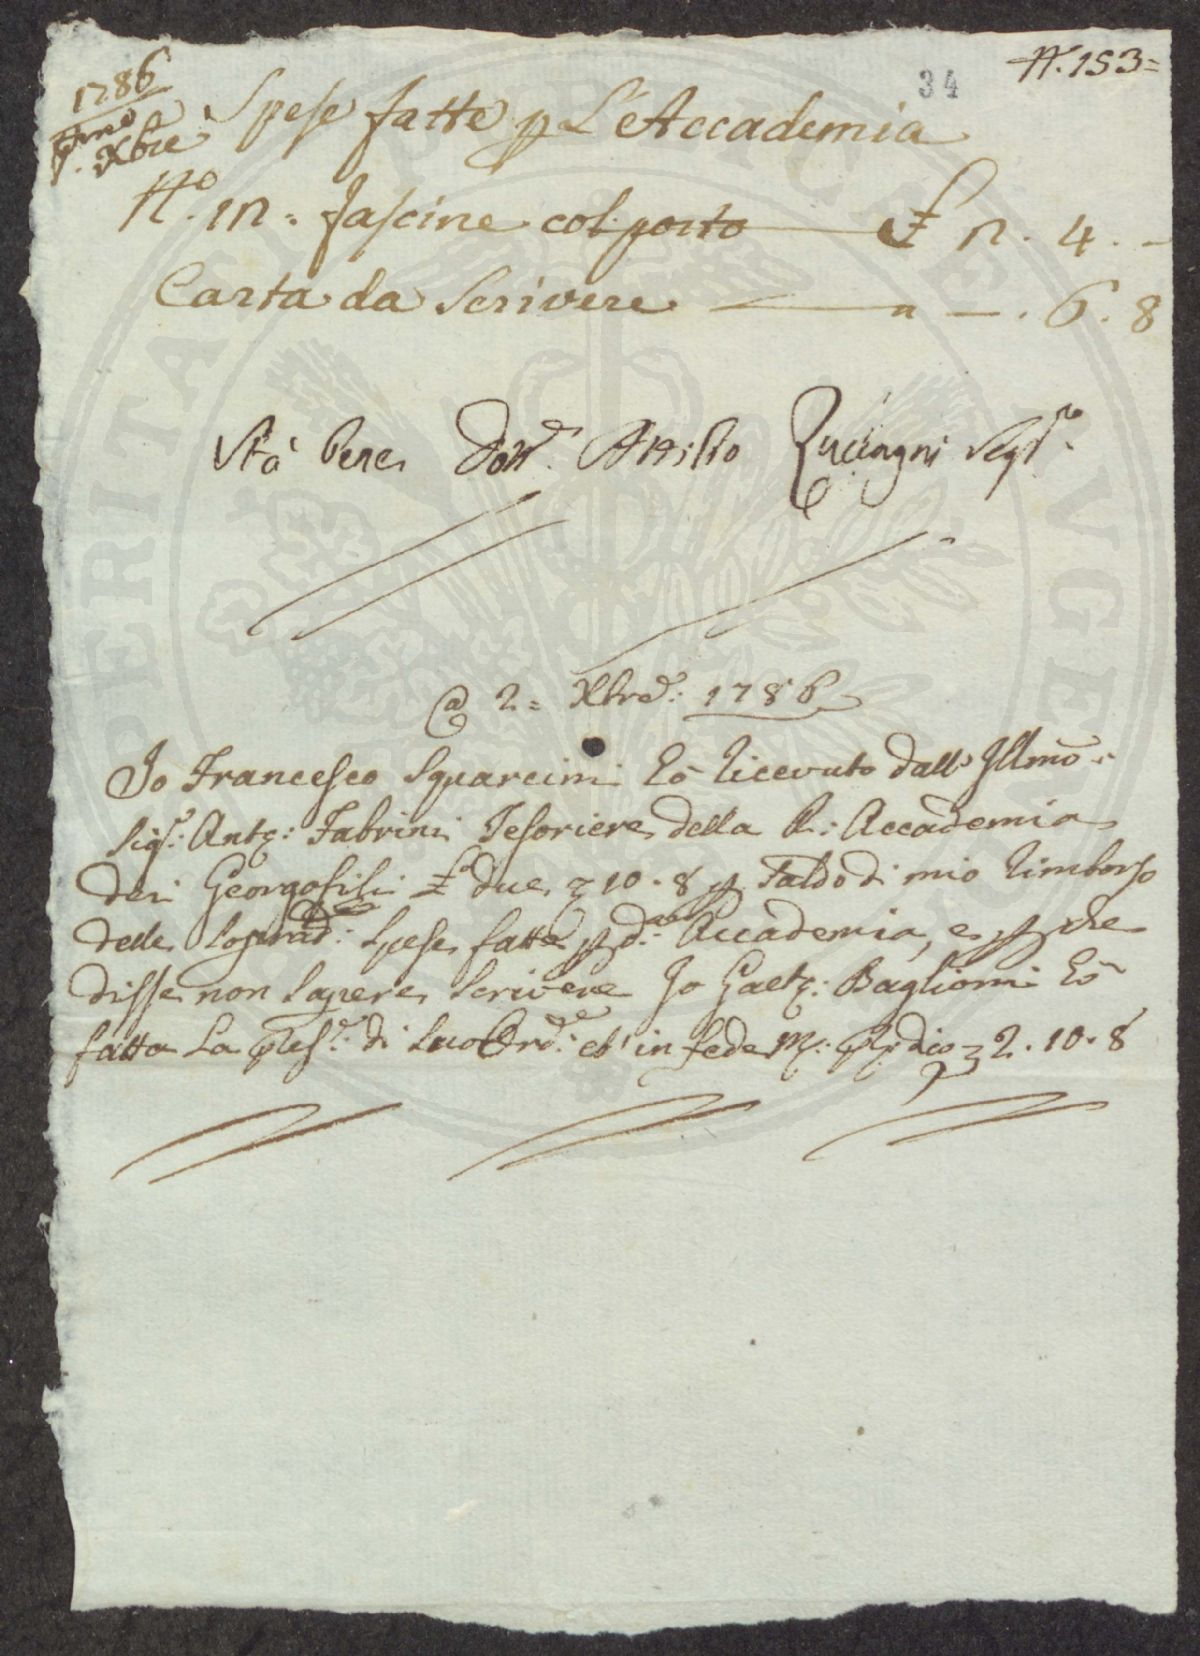 N. 153=
34
1786
Pmo
Xbre
Spese fatte p L'Accademia
N.o 12 = fascine col porto £ 2. 4. –
Carta da Scrivere " –. 6. 8
Stà bene Dott. Attilio Zuccagni Seg.rio
@ 2 = Xbre: 1786
Io Francesco Squarcini hò ricevuto dall' Illmo.
Sig.e Ant.o: Fabrini Tesoriere della R: Accademia
dei Georgofili £ due 10. 8 p Saldo di mio rimborso
delle Soprad.e: Spese fatte p d.a: Accademia, e p che
disse non Sapere Scrivere Io Gaet.o: Baglioni hò
fatta La pres.e: di Suo Ord.e: et in fede M: pp: dico 2. 10. 8
PERITAS